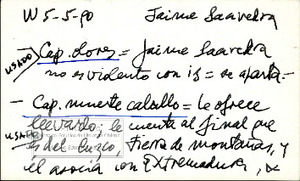 W 5-5-90 Jaime Saavedra
USADO
Cap. olores = Jaime Saavedra
no es violento con is = se aparta -
- Cap. muerte caballo = le ofrece
USADO
llevarlo; le cuenta al final que
es del Bierzo, tierra de montañas, y
él asocia con Extremadura,